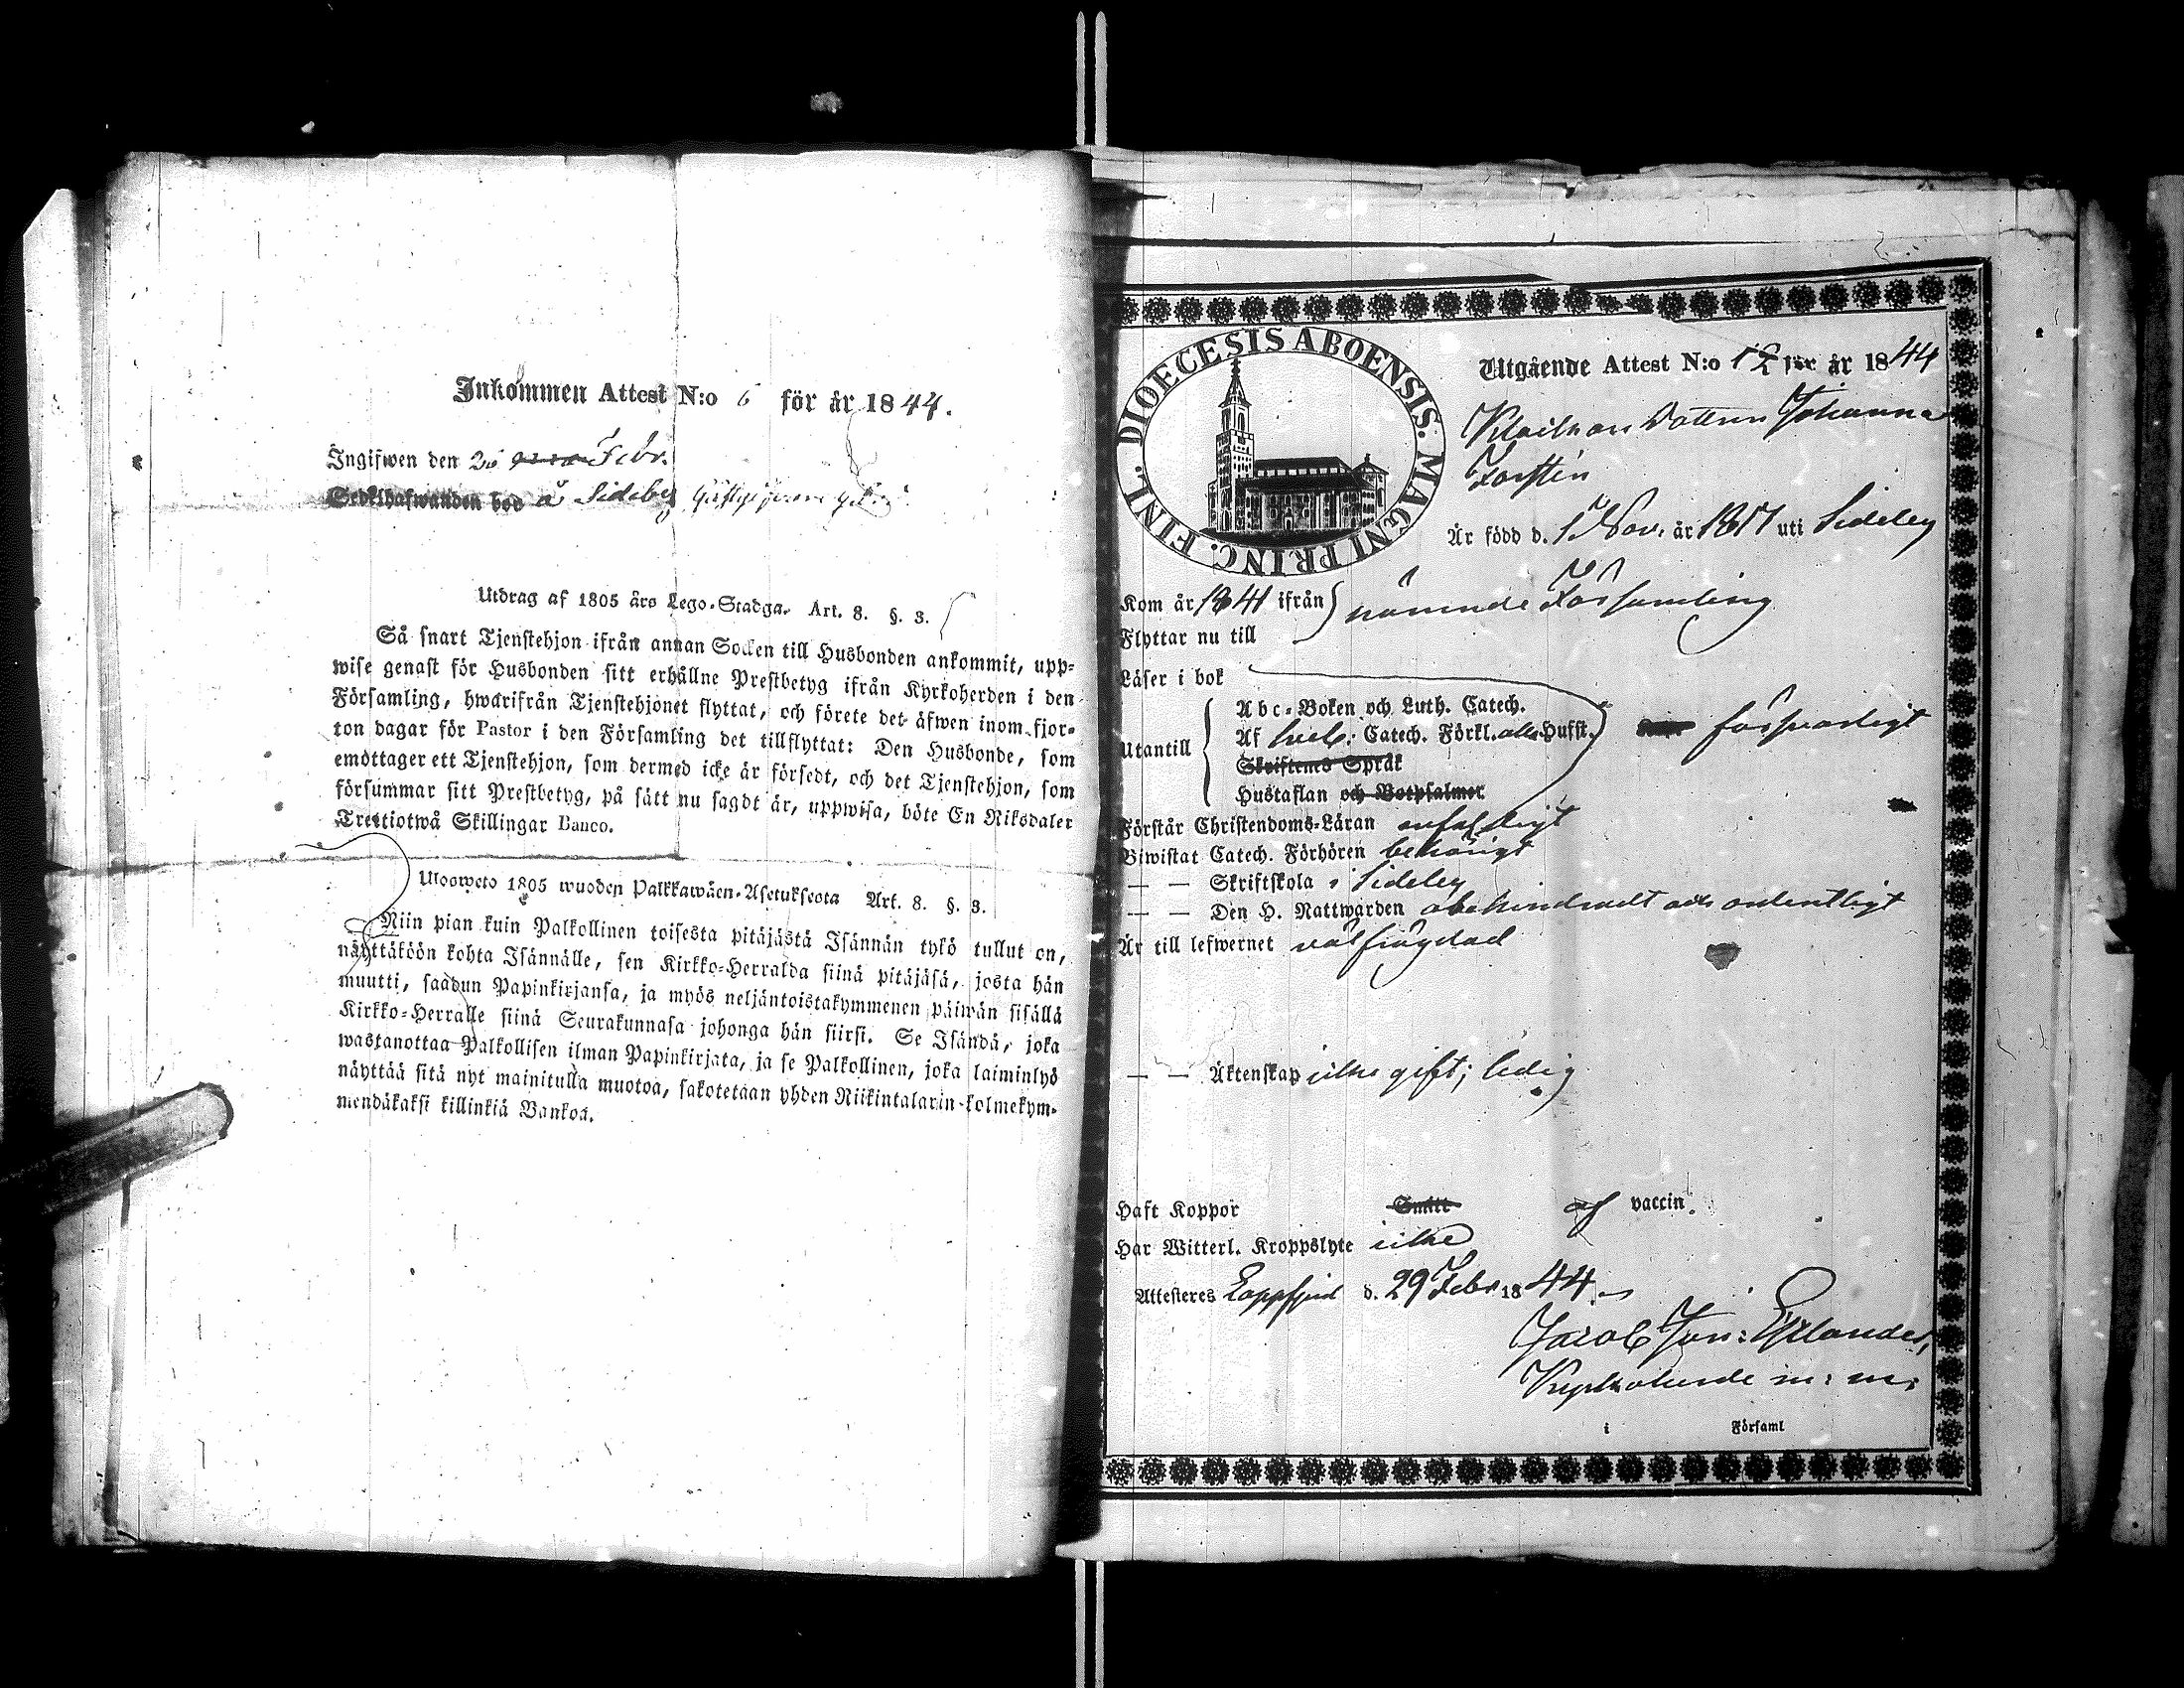 Inkommen Attest N:o 6 för år 1844.
Ingifwen den Febr.
Sedelhafwanden bod å Sideby
Utdrag af 1805 års Lego-Stadga. Art. 8. §. 3.
Så snart Tjenstehjon ifrån annan Socken till Husbonden ankommit, upp-
wise genast för Husbonden sitt erhållne Prestbetyg ifrån Kyrkoherden i den
Församling, hwarifrån Tjenstehjonet flyttat, och förete det äfwen inom fjor-
ton dagar för Pastor i den Församling det tillflyttat: Den Husbonde, som
emottager ett Tjenstehjon, som dermed icke är försedt, och det Tjenstehjon, som
försummar sitt Prestbetyg, på sätt nu sagdt är, uppwisa, böte En Riksdaler
Trettiotwå Skillingar Banco.
Ulosweto 1805 wuoden Palkkawäen-Asetuksesta Art. 8. §. 3.
Niin pian kuin Palkollinen toisesta pitäjästä Isännän tykö tullut on,
näyttäköön kohta Isännälle, sen Kirkko-Herralda siinä pitäjäsä, josta hän
muutti, saadun Papinkirjansa, ja myös neljäntoistakymmenen päiwän sisällä
Kirkko-Herralle siinä Seurakunnasa johonga hän siirsi. Se Isändä, joka
wastanottaa Palkollisen ilman Papinkirjata, ja se Palkollinen, joka laiminlyö
näyttää sitä nyt mainitulla muotoa, sakotetaan yhden Riikintalarin kolmekym-
mendäkaksi killinkiä Bankoa.
FINL. DIOECESIS ABOENSIS. MAGNI PRINC.
Utgående Attest N:o 12 för år 1844
Dottern Johanna
Forstén
Är född d. 1 Nov. år 1817 uti Sideby
Kom år 1841 ifrån
Flyttar nu till
nämnde Församling
Läser i bok
Utantill
Abc-Boken och Luth. Catech.
Af Sveb. Catech. Förkl. Hufst.
Skriftenes Språk
Hustaflan och Botpsalmer
försvarligt
Förstår Christendoms-Läran enfaldigt
Biwistat Catech. Förhören behörigt
— — Skriftskola i Sideby
— — Den H. Nattwarden obehindradt och ordentligt
Är till lefwernet välfrägdad
— — Äktenskap icke gift; ledig
Haft Koppor Smitt af vaccin.
Har Witterl. Kroppslyte icke
Attesteres Lappfjerd d. 29 Febr 1844.
Jacob Jon:
Kyrkoherde m: m:
i Församl